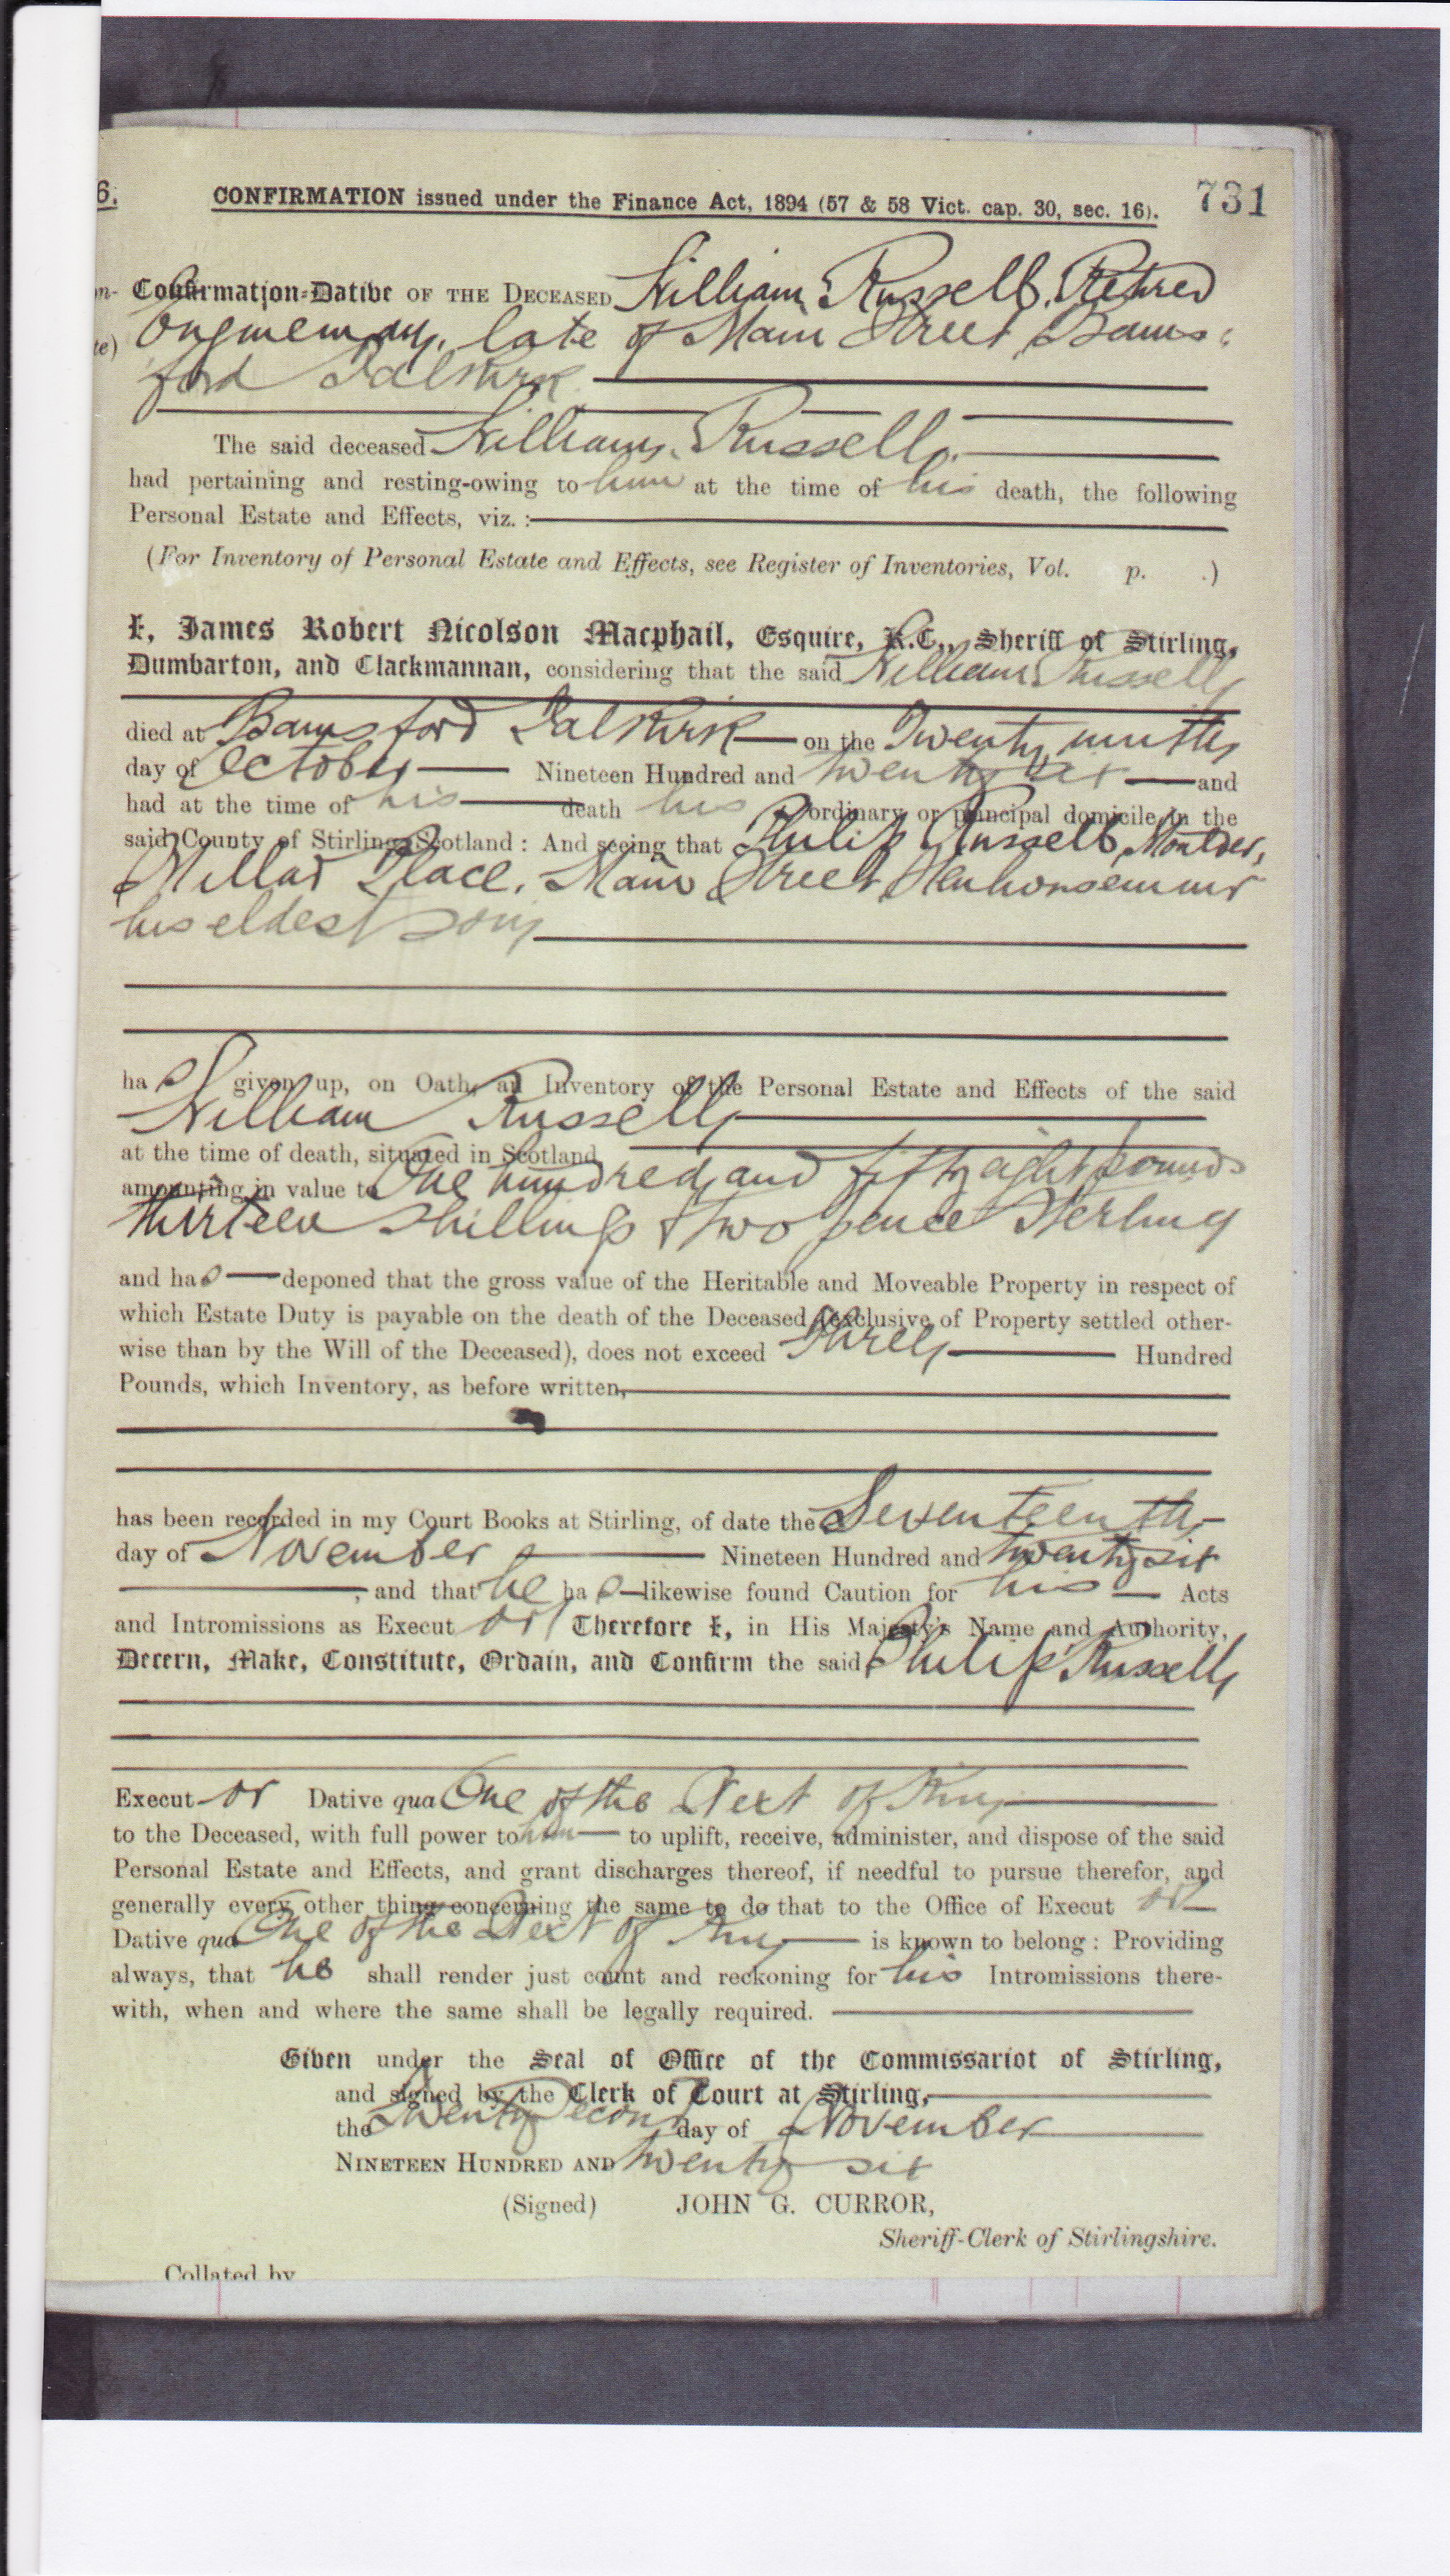 6.
CONFIRMATION issued under the Finance Act, 1894 (57 & 58 Vict. cap. 30, sec. 16).
731
Confirmation-Dative OF THE DECEASED William Russell, Retired
Engineman, late of Main Street, Bains:
te)
ford Falkirk
The said deceased William Russell
had pertaining and resting-owing to him at the time of his death, the following
Personal Estate and Effects, viz. :
(For Inventory of Personal Estate and Effects, see Register of Inventories, Vol. p. .)
I, James Robert Nicolson Macphail, Esquire, K.C., Sheriff of Stirling,
Dumbarton, and Clackmannan, considering that the said William Russell
died at Bainsford Falkirk on the Twenty ninth
day of October Nineteen Hundred and twenty six and
had at the time of his death his ordinary or principal domicile in the
said County of Stirling Scotland : And seeing that Philip Russell, Moulder,
Millar Place, Main Street Stenhousemuir
his eldest son
has given up, on Oath, an Inventory of the Personal Estate and Effects of the said
William Russell
at the time of death, situated in Scotland
amounting in value to One hundred and fifty eight pounds
thirteen shillings & two pence Sterling
and has deponed that the gross value of the Heritable and Moveable Property in respect of
which Estate Duty is payable on the death of the Deceased (exclusive of Property settled other-
wise than by the Will of the Deceased), does not exceed Three Hundred
Pounds, which Inventory, as before written,
has been recorded in my Court Books at Stirling, of date the Seventeenth
day of November Nineteen Hundred and twenty six
, and that he has likewise found Caution for his Acts
and Intromissions as Execut or Therefore I, in His Majesty's Name and Authority,
Decern, Make, Constitute, Ordain, and Confirm the said Philip Russell
Execut or Dative qua One of the Next of Kin
to the Deceased, with full power to him to uplift, receive, administer, and dispose of the said
Personal Estate and Effects, and grant discharges thereof, if needful to pursue therefor, and
generally every other thing concerning the same to do that to the Office of Execut or
Dative qua One of the Next of Kin is known to belong : Providing
always, that he shall render just count and reckoning for his Intromissions there-
with, when and where the same shall be legally required.
Given under the Seal of Office of the Commissariot of Stirling,
and signed by the Clerk of Court at Stirling,
the Twenty Second day of November
NINETEEN HUNDRED AND twenty six
(Signed) JOHN G. CURROR,
Sheriff-Clerk of Stirlingshire.
Collated by